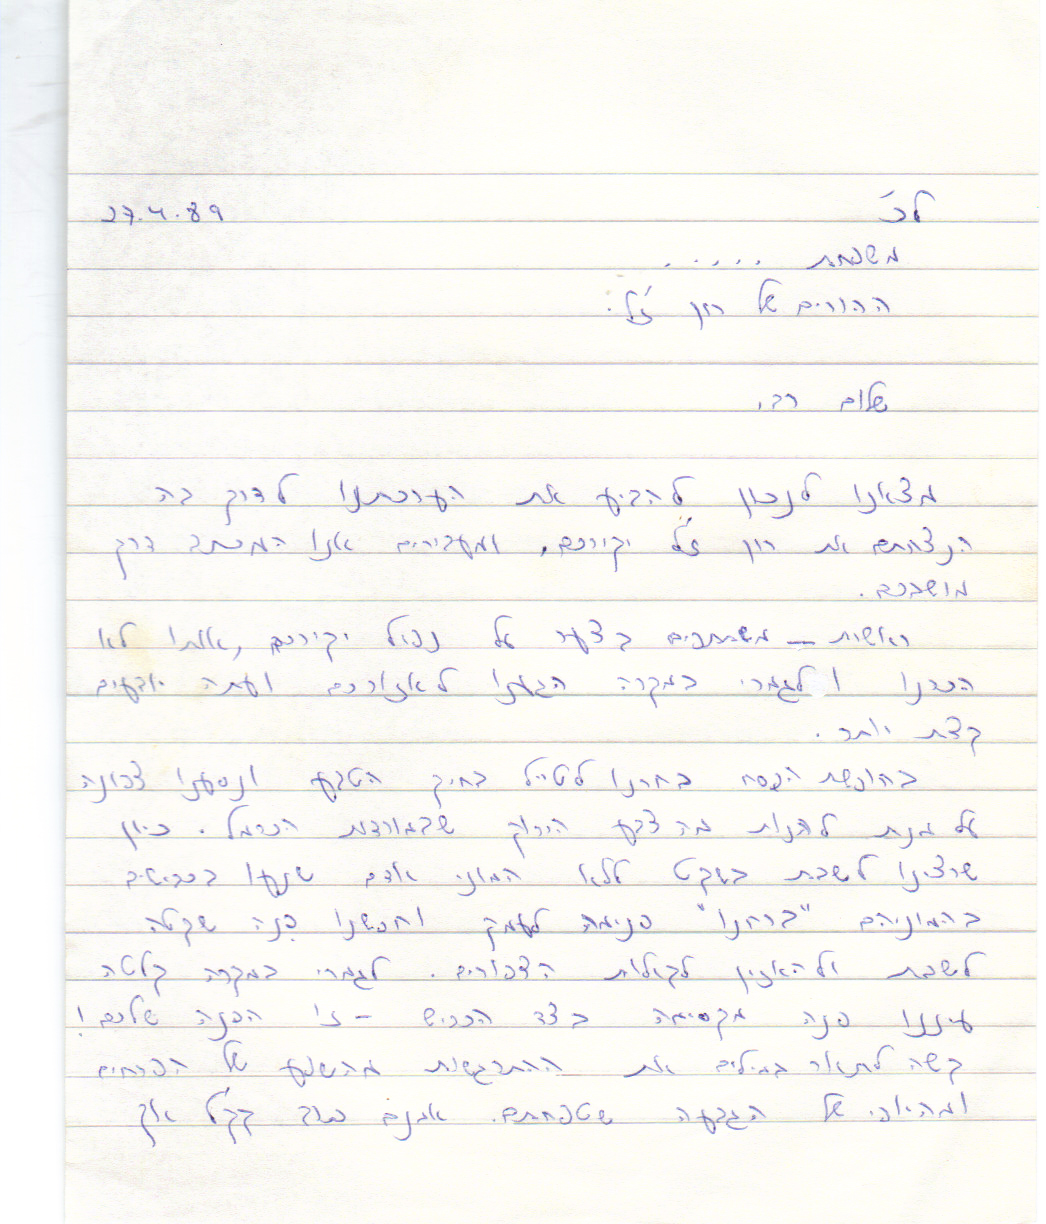 לכ'
27.4.89
משפחת .....
ההורים של רון ז"ל.
שלום רב,
מצאנו לנכון להביע את הערכתנו לדרך בה
הנצחתם את רון ז"ל יקירכם, ומעבירים אנו המכתב דרך
מושבכם.
ראשית – משתתפים בצער על נפול יקירכם, אותו לא
הכרנו ולגמרי במקרה הגענו לאזורכם ועתה יודעים
קצת יותר.
בחופשת הפסח בחרנו לטייל בחיק הטבע ונסענו צפונה
על מנת להנות מהצבע הירוק שבמורדות הכרמל. כיון
שרצינו לשבת בשקט ללא המוני אדם שנעו בכבישים
בהמוניהם "ברחנו" פנימה לעמק וחפשנו פנה שקטה
לשבת ולהאזין לקולות הצפורים. לגמרי במקרה קלטה
עיננו פנה מקסימה בצד הכביש – זו הפנה שלכם!
קשה לתאר במילים את ההתרגשות מהשפע של הפרחים
ומהיופי של הגבעה שטפחתם. אמנם בתוך קק"ל אך